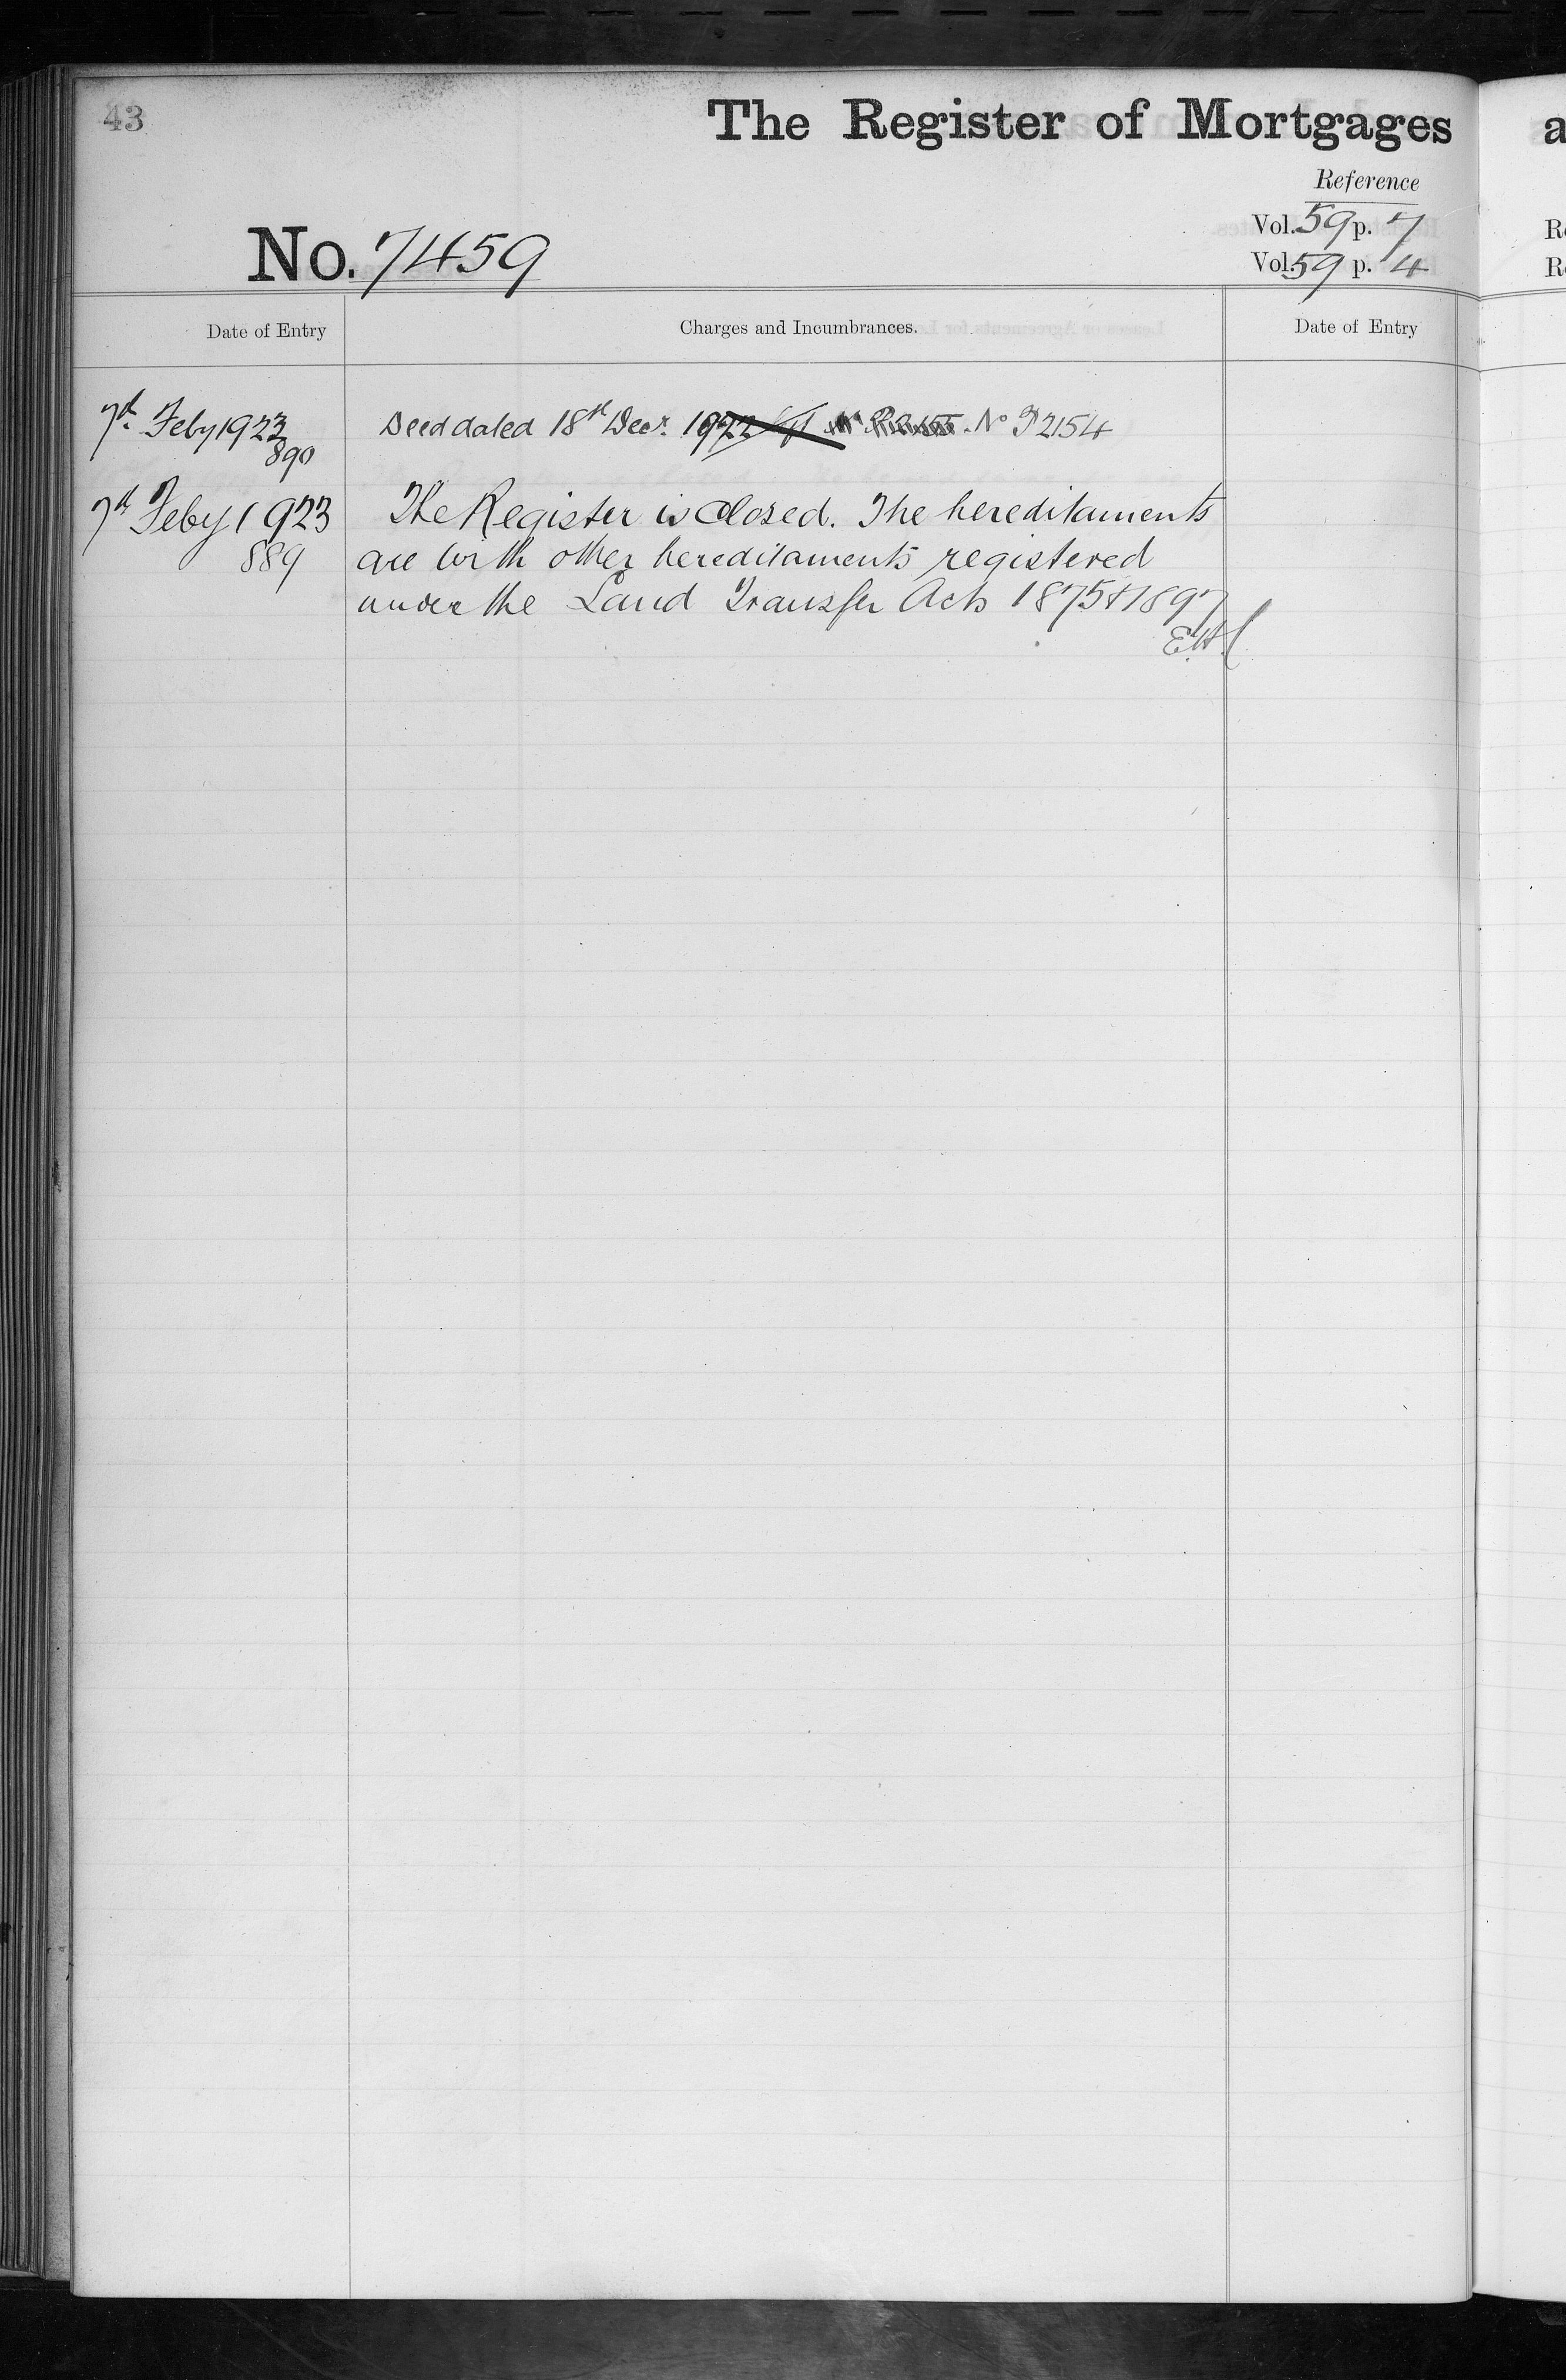 43
The Register of Mortgages
Reference
Vol. 59 p. 7
Vol. 59 p. 4
No. 7459
Date of Entry
Charges and Incumbrances.
Date of Entry
7th Feby 1923
890
Deed dated 18th Decr. 1922 No P2154
7th Feby 1923
889
The Register is Closed. The hereditaments
are with other hereditaments registered
under the Land Transfer Acts 1875 & 1897
a
R
R